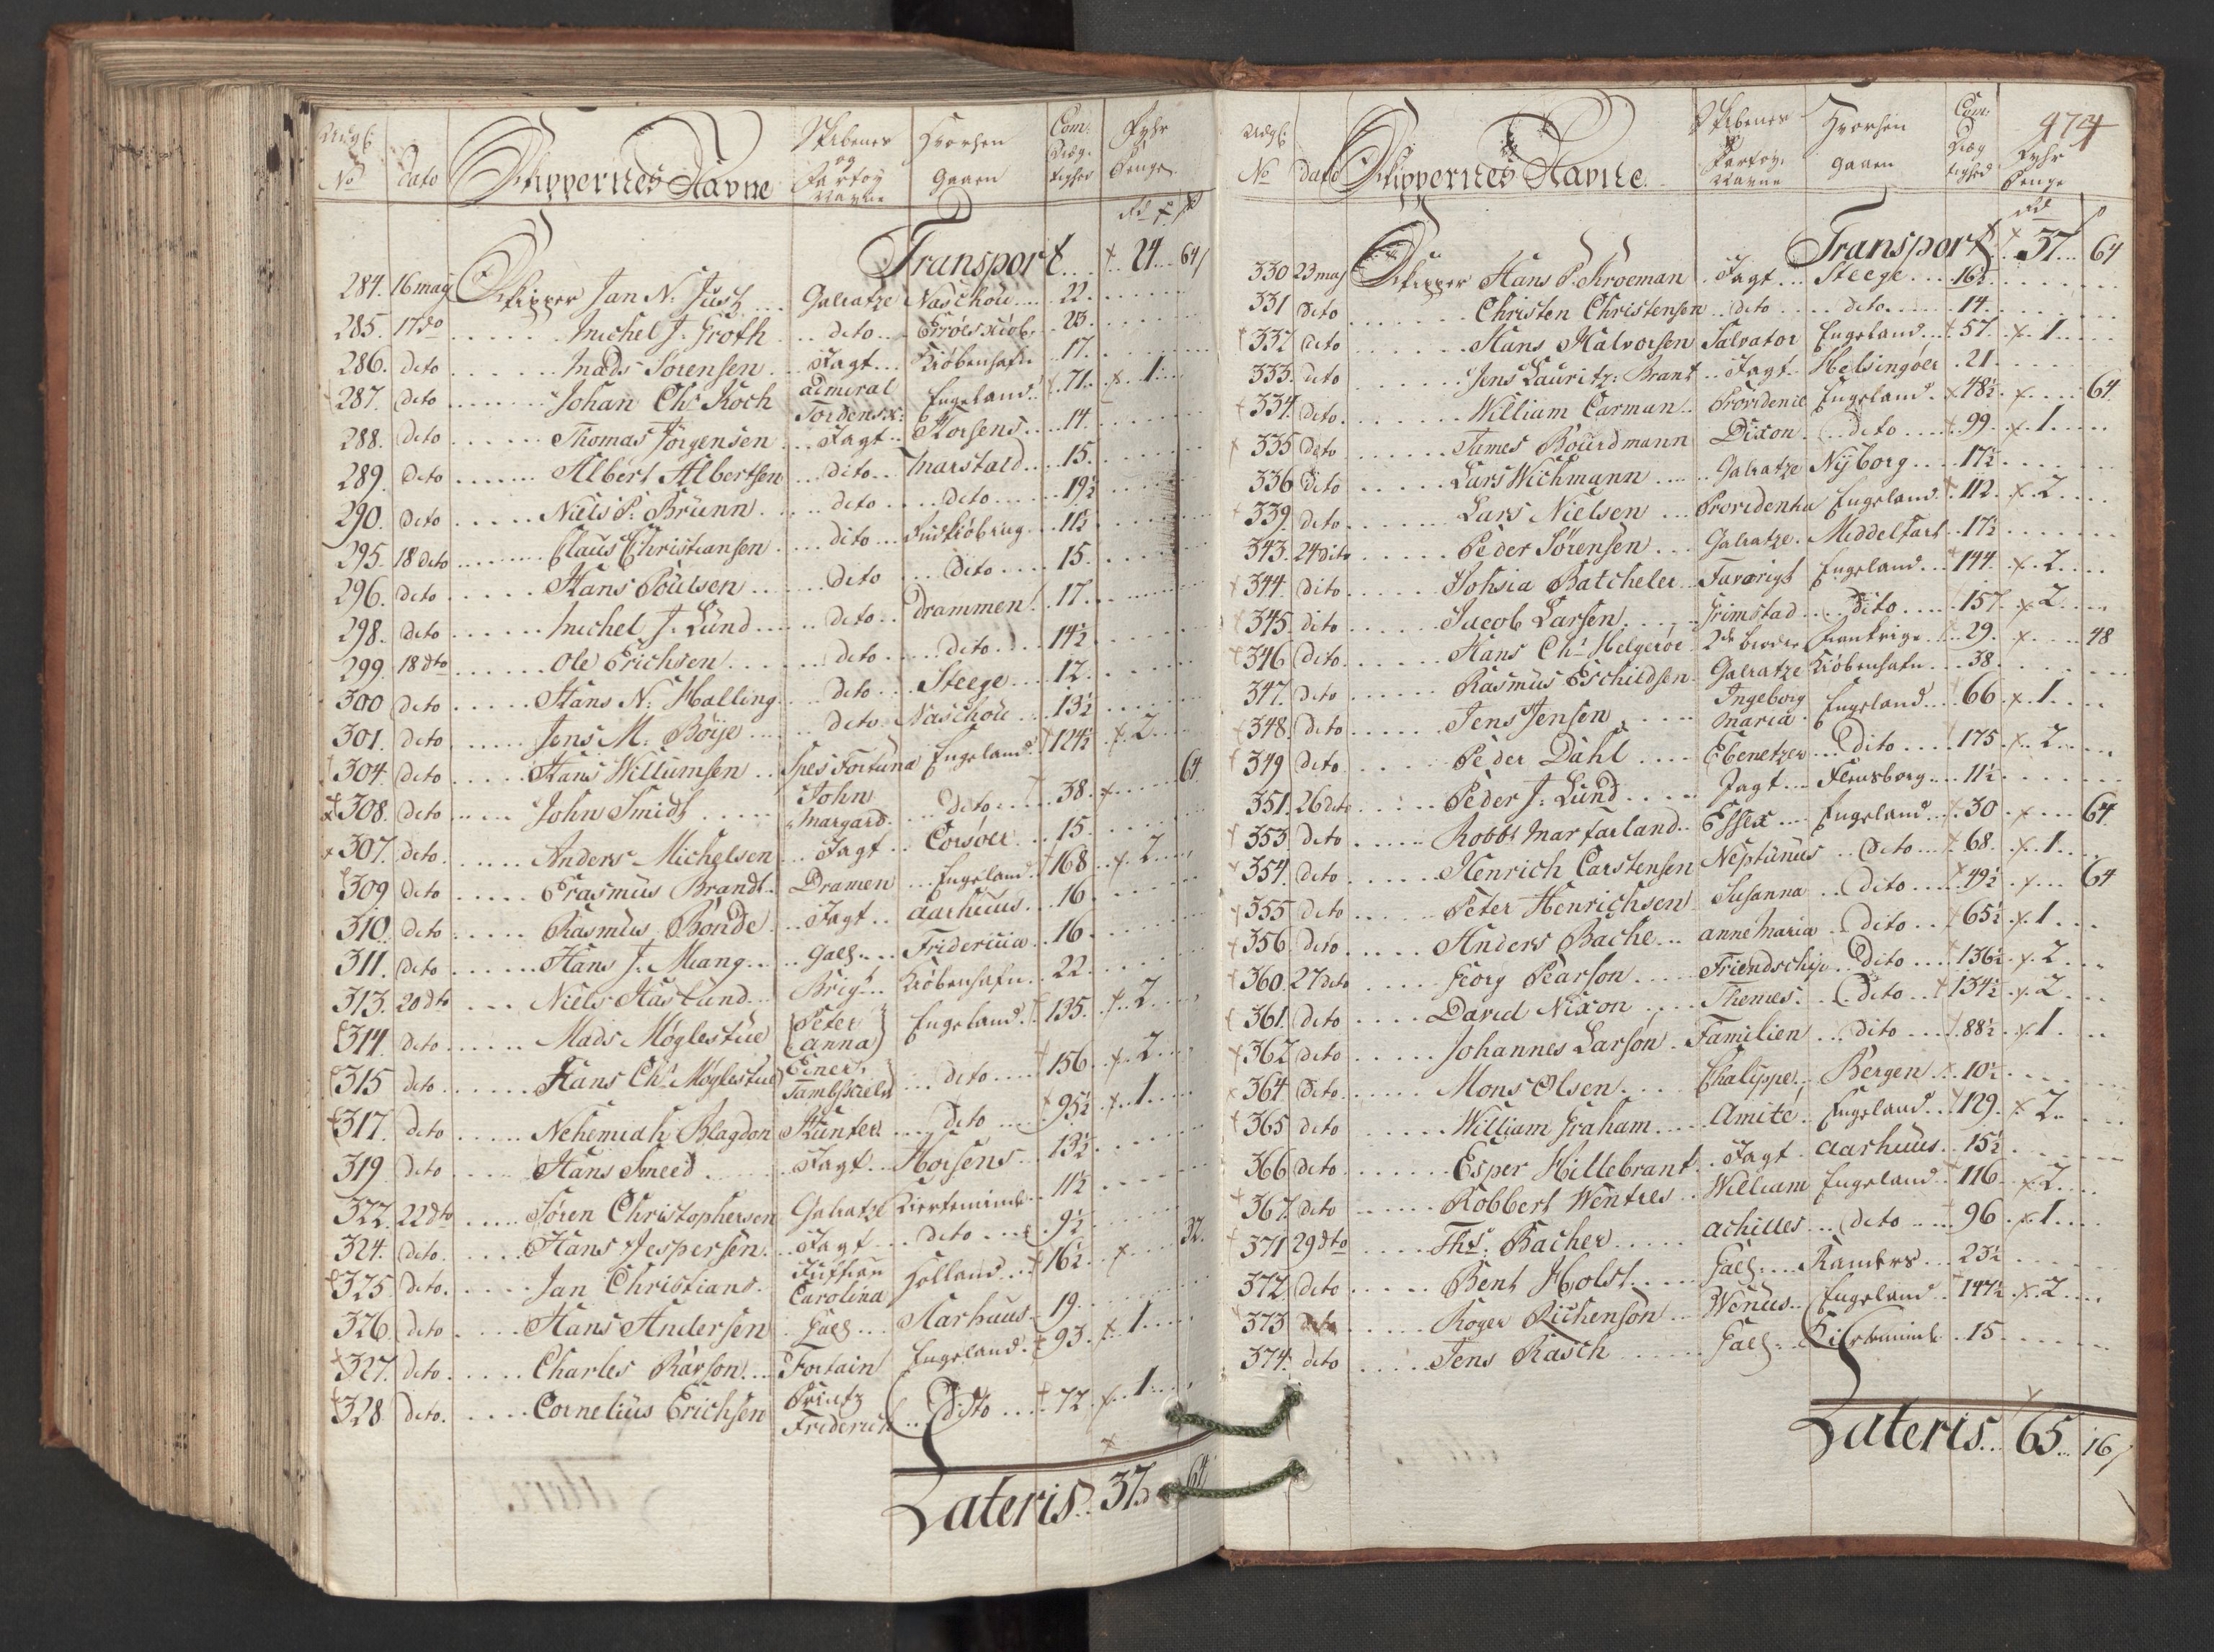 Udgf: No
Dato
Skippernes Navne
Skibenes og Fartøy Navne
Hvorhen gaaen
Com: Dræg: tighed
Fyhr Penge
Transport 24 64
284. 16 may Skipper Jan N. Just Galeatze Naschou 22
285. 17 do Michel J. Groth dito 23
286. dito Mads Sørensen Jagt Kiøbenhafn 17
287. dito Johan Chr Koch Admiral Tordensk: Engeland 71 1
288. dito Thomas Jørgensen Jagt Horsens 14
289. dito Albert Albertsen dito Marstald 15
290. dito Niels P. Brunn dito dito 19½
295. 18 dito Claus Christiansen dito Rudkiøbing 11½
296. dito Hans Poulsen dito dito 15
298. dito Michel J. Lund dito Drammen 17
299. 18 dto Ole Erichsen dito dito 14½
300 dito Hans N. Halling dito Steege 12
301. dito Jens M. Böije dito Naschou 13½
304. dito Hans Willumsen Spes Fortuna Engeland 124½ 2
308. dito John Smidt John Margard dito 38 64
307. dito Anders Michelsen Jagt Corsöer 15
309 dito Erasmus Brandt Dramen Engeland 168 2
310. dito Rasmus Bonde Jagt Aarhuus 16
311. dito Hans J. Mang Galj: Fridericia 16
313. 20 dto Niels Haslund Brigt Kiøbenhafn 22
314. dito Mads Møglestue Peter Anna Engeland 135 2
315 dito Hans Chr Møglestue dito 156 2
317. dito Nehemiah Blagdon Hunter dito 95½ 1
319 dito Hans Smeed Jagt Horsens 13½
322. 22 dto Søren Christophersen Galeatze Kierteminde 11½
324. dito Hans Jespersen Jagt dito 9½
325 dito Jan Christians Carolina Holland 16½ 32
326. dito Hans Andersen Galj: Aarhuus 19
327. dito Charles Rarson Fortain Engeland 93 1
328. dito Cornelius Erichsen Printz Friderich dito 72 1
Lateris 37 64
474
Udgf: No
Dato
Skippernes Navne
Skibenes og Fartøy Navne
Hvorhen gaaen
Com: Dræg tighed
Fyhr Penge
Transport 37 64
330 23 may Skipper Hans P. Stroeman Jagt Steege 16½
331 dito Christen Christensen dito dito 14
332 dito Hans Halvorsen Salvator Engeland 57 1
333. dito Jens Lauritz: Brant Jagt Helsingöer 21
334. dito William Carman Providence Engeland 48½ 64
335 dito James Bourdmann Dixon dito 99 1
336 dito Lars Wichmann Galeatze Nyborg 17½
339. dito Lars Nielsen Providentia Engeland 112 2
343. 24 dito Peder Sørensen Galeatze Middelfart 17½
344. dito Johsia Batcheler Favorigt Engeland 144 2
345. dito Jacob Larsen Grimstad dito 157 2
346 dito Hans Chr Helgeröe 2de brødre Frankrige 29 48
347. dito Rasmus Eschildsen Galeatze Kiøbenhafn 38
348. dito Jens Jensen Ingeborg Maria Engeland 66 1
349 dito Peder Dahl Ebenetzer dito 175 2
351. 26 dito Peder J. Lund Jagt Flensborg 11½
353. dito Robbt Marfarland Essex Engeland 30 64
354. dito Henrich Carstensen Neptunus dito 68 1
355 dito Peter Henrichsen Susanna dito 49½ 64
356 dito Anders Bache Anne Maria dito 65½ 1
360. 27 dito Georg Pearson Friendschip dito 136½ 2
361. dito David Nixon Themes dito 134½ 2
362 dito Johannes Larson Familien dito 88½ 1
364 dito Mons Olsen Chalippe Bergen 10½
365 dito William Graham Amité Engeland 129 2
366 dito Esper Hillebrant Jagt Aarhuus 15½
367. dito Robbert Wentles William Engeland 116 2
371 29 dto Ths: Bacher Achilles dito 96 1
372. dito Bent Holst Galj: Randers 23½
373 dito Roger Richenson Wenus Engeland 147½ 2
374. dito Jens Rasch Galj: Kierteminde 15
Lateris 65 16